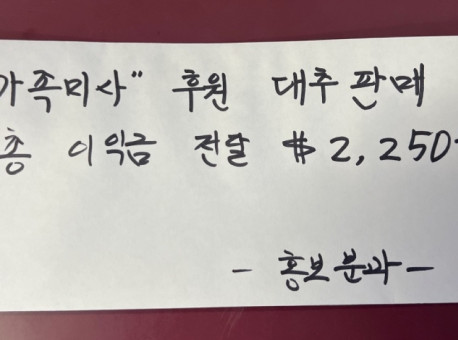 가족미사" 후원 대추 판매
총 이익금 전달 $2,250
- 홍보분과 -